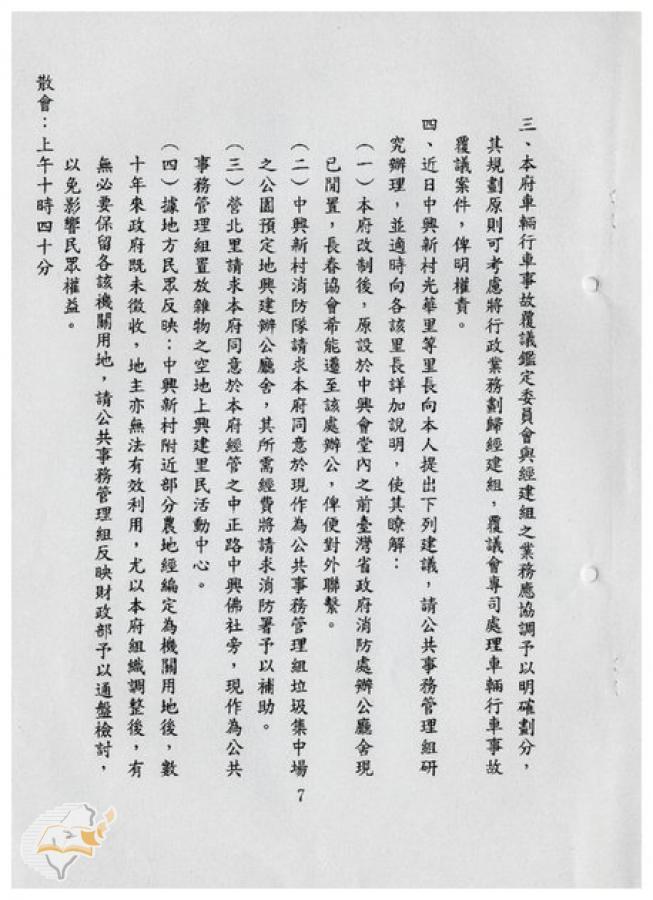 三、本府車輛行車事故覆議鑑定委員會與經建組之業務應協調予以明確劃分，
其規劃原則可考慮將行政業務劃歸經建組，覆議會專司處理車輛行車事故
覆議案件，俾明權責。
四、近日中興新村光華里等里長向本人提出下列建議，請公共事務管理組研
究辦理，並適時向各該里長詳加說明，使其瞭解：
（一）本府改制後，原設於中興會堂內之前臺灣省政府消防處辦公廳舍現
已閒置，長春協會希能遷至該處辦公，俾便對外聯繫。
（二）中興新村消防隊請求本府同意於現作為公共事務管理組垃圾集中場
之公園預定地興建辦公廳舍，其所需經費將請求消防署予以補助。
（三）營北里請求本府同意於本府經管之中正路中興佛社旁，現作為公共
事務管理組置放雜物之空地上興建里民活動中心。
（四）據地方民眾反映：中興新村附近部分農地經編定為機關用地後，數
十年來政府既未徵收，地主亦無法有效利用，尤以本府組織調整後，有
無必要保留各該機關用地，請公共事務管理組反映財政部予以通盤檢討，
以免影響民眾權益。
散會：上午十時四十分
7